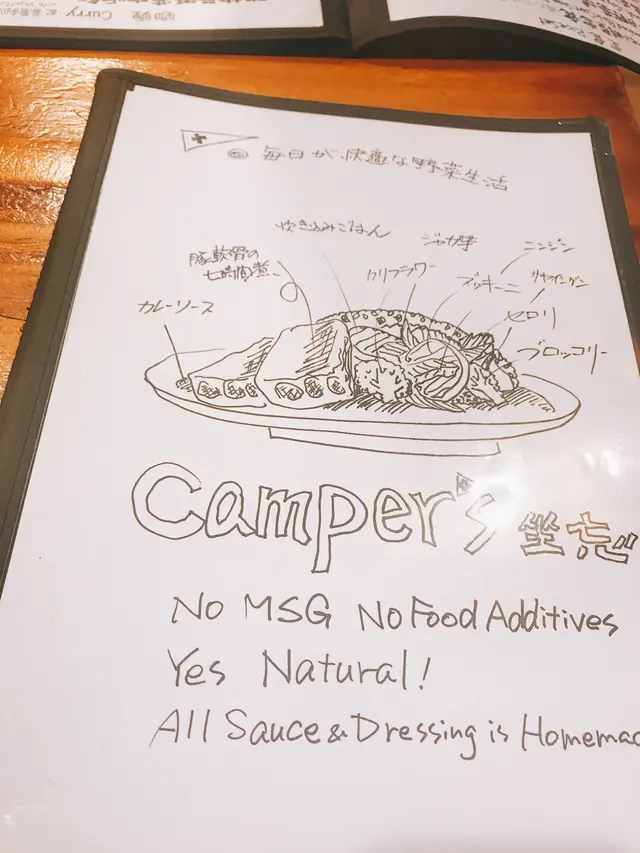 Curry
毎日が快適な野菜生活
炊き込みごはん
ジャガ芋
ニンジン
豚軟骨の
カリフラワー
ズッキーニ
サヤインゲン
カレーソース
セロリ
ブロッコリー
Camper's 坐忘
No MSG No Food Additives
Yes Natural!
All Sauce & Dressing is Homemad